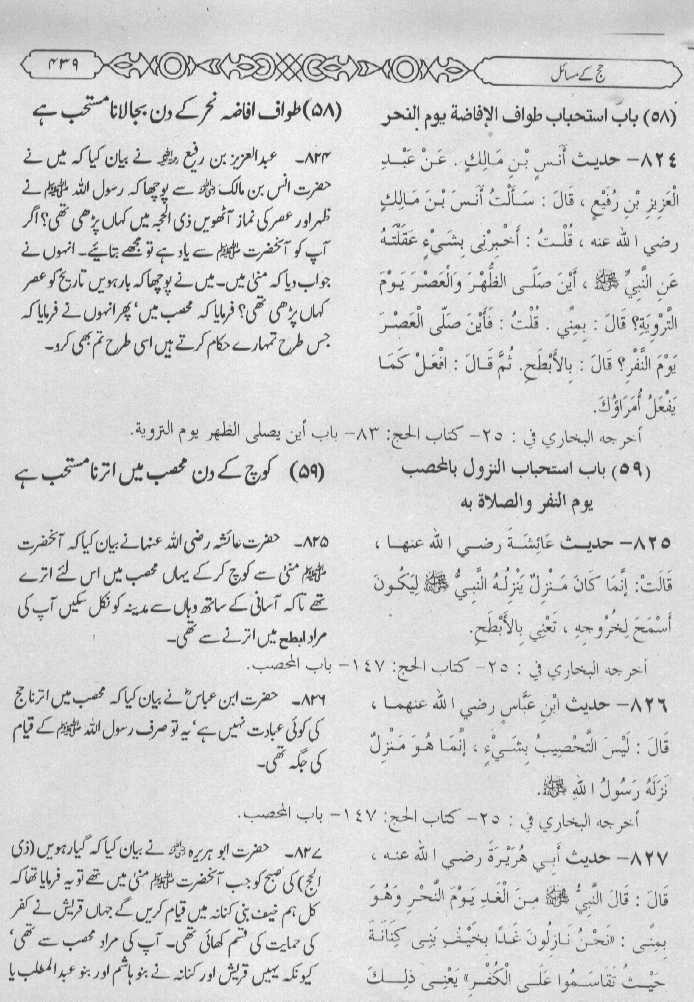 حج کے مسائل
۴۳۹
(٥٨) باب استحباب طواف الإفاضة يوم النحر
٨٢٤- حديث أَنَسِ بْنِ مَالِكٍ . عَنْ عَبْدِ
الْعَزِيزِ بْنِ رُفَيْعٍ ، قَالَ : سَأَلْتُ أَنَسَ بْنَ مَالِكٍ
رضي الله عنه ، قُلْتُ : أَخْبِرْنِي بِشَيْءٍ عَقَلْتَهُ
عَنِ النَّبِيِّ ﷺ ، أَيْنَ صَلَّى الظُّهْرَ وَالْعَصْرَ يَوْمَ
التَّرْوِيَةِ؟ قَالَ : بِمِنًى . قُلْتُ : فَأَيْنَ صَلَّى الْعَصْرَ
يَوْمَ النَّفْرِ؟ قَالَ : بِالأَبْطَحِ. ثُمَّ قَالَ : افْعَلْ كَمَا
يَفْعَلُ أُمَرَاؤُكَ.
(۵۸) طواف افاضہ نحر کے دن بجالانا مستحب ہے
۸۲۴۔ عبدالعزیز بن رفیع رحمہ اللہ نے بیان کیا کہ میں نے
حضرت انس بن مالک رضی اللہ عنہ سے پوچھا کہ رسول اللہ ﷺ نے
ظہر اور عصر کی نماز آٹھویں ذی الحجہ میں کہاں پڑھی تھی؟ اگر
آپ کو آنحضرت ﷺ سے یاد ہے تو مجھے بتائیے۔ انہوں نے
جواب دیا کہ منیٰ میں۔ میں نے پوچھا کہ بارہویں تاریخ کو عصر
کہاں پڑھی تھی؟ فرمایا کہ محصب میں‘ پھر انہوں نے فرمایا کہ
جس طرح تمہارے حکام کرتے ہیں اسی طرح تم بھی کرو۔
أخرجه البخاري في : ٢٥- كتاب الحج: ٨٣- باب أين يصلى الظهر يوم التروية.
(٥٩) باب استحباب النزول بالمحصب
يوم النفر والصلاة به
٨٢٥- حديث عَائِشَةَ رضي الله عنها ،
قَالَتْ: إِنَّمَا كَانَ مَنْزِلٌ يَنْزِلُهُ النَّبِيُّ ﷺ لِيَكُونَ
أَسْمَحَ لِخُرُوجِهِ ، تَعْنِي بِالأَبْطَحِ.
(۵۹) کوچ کے دن محصب میں اترنا مستحب ہے
۸۲۵۔ حضرت عائشہ رضی اللہ عنہا نے بیان کیا کہ آنحضرت
ﷺ منیٰ سے کوچ کر کے یہاں محصب میں اس لئے اترے
تھے تاکہ آسانی کے ساتھ وہاں سے مدینہ کو نکل سکیں آپ کی
مراد ابطح میں اترنے سے تھی۔
أخرجه البخاري في : ٢٥- كتاب الحج: ١٤٧- باب المحصب.
٨٢٦- حديث ابْنِ عَبَّاسٍ رضي الله عنهما ،
قَالَ : لَيْسَ التَّحْصِيبُ بِشَيْءٍ ، إِنَّمَا هُوَ مَنْزِلٌ
نَزَلَهُ رَسُولُ اللهِ ﷺ.
۸۲۶۔ حضرت ابن عباسؓ نے بیان کیا کہ محصب میں اترنا حج
کی کوئی عبادت نہیں ہے‘ یہ تو صرف رسول اللہ ﷺ کے قیام
کی جگہ تھی۔
أخرجه البخاري في : ٢٥- كتاب الحج: ١٤٧- باب المحصب.
٨٢٧- حديث أَبِي هُرَيْرَةَ رضي الله عنه ،
قَالَ : قَالَ النَّبِيُّ ﷺ مِنَ الْغَدِ يَوْمَ النَّحْرِ وَهُوَ
بِمِنًى : «نَحْنُ نَازِلُونَ غَدًا بِخَيْفِ بَنِي كِنَانَةَ
حَيْثُ تَقَاسَمُوا عَلَى الْكُفْرِ» يَعْنِي ذلِكَ
۸۲۷۔ حضرت ابو ہریرہ رضی اللہ عنہ نے بیان کیا کہ گیارہویں (ذی
الحج) کی صبح کو جب آنحضرت ﷺ منیٰ میں تھے تو یہ فرمایا تھا کہ
کل ہم خیف بنی کنانہ میں قیام کریں گے جہاں قریش نے کفر
کی حمایت کی قسم کھائی تھی۔ آپ کی مراد محصب سے تھی‘
کیونکہ یہیں قریش اور کنانہ نے بنو ہاشم اور بنو عبدالمطلب یا